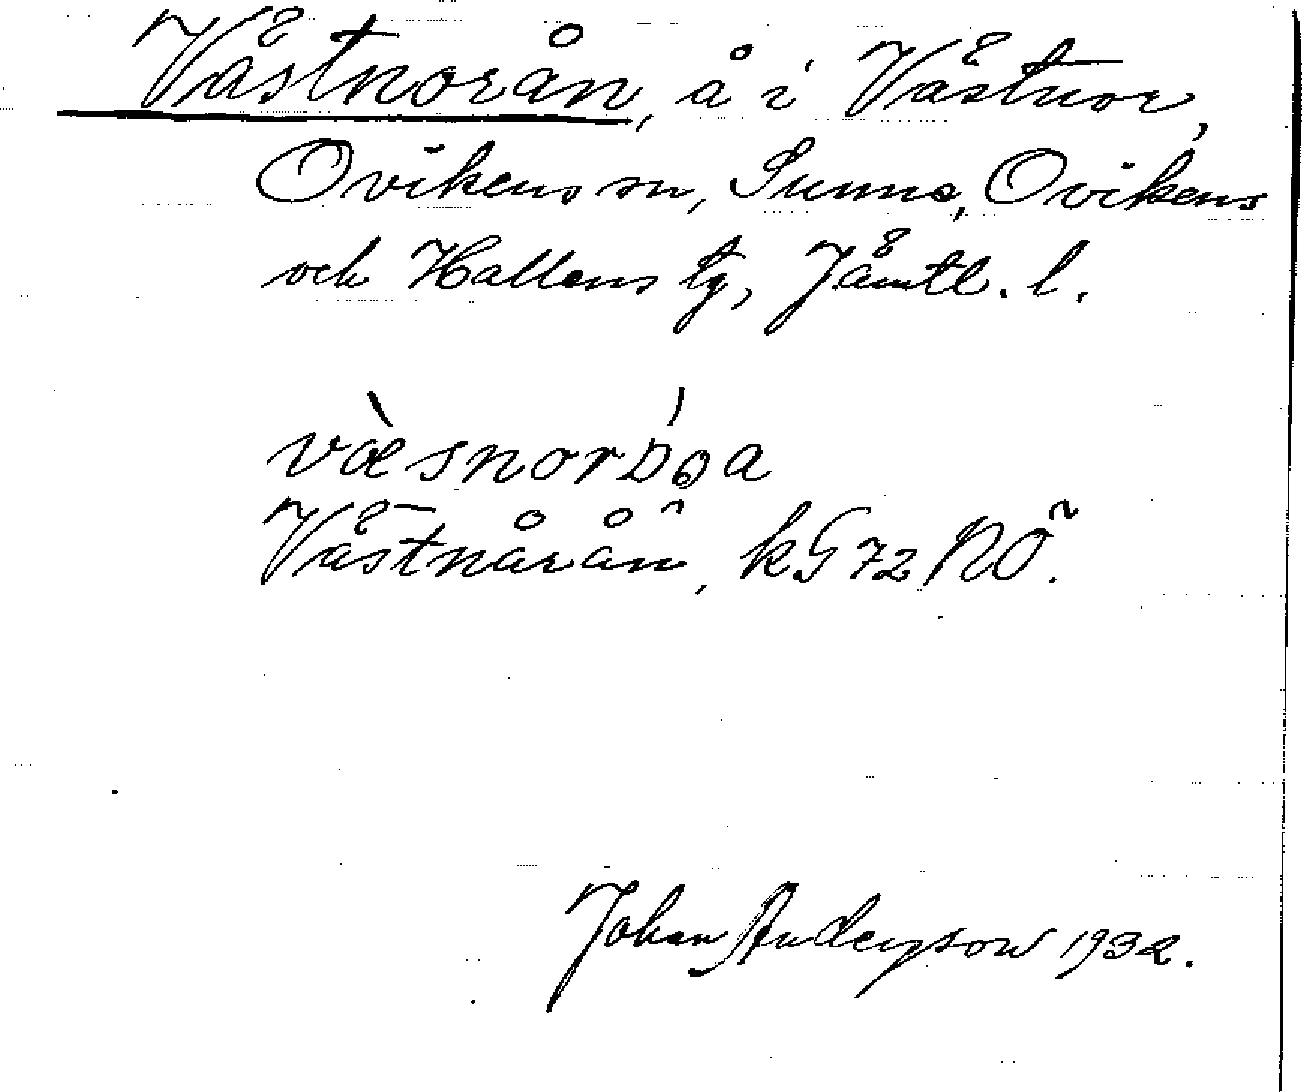 Västnorån, å i Västnor,
Ovikens sn, Sunne, Ovikens
och Hallens tg, Jämtl. l.
Västnårån, kG 72 NÖ.
Johan Anderson 1932.